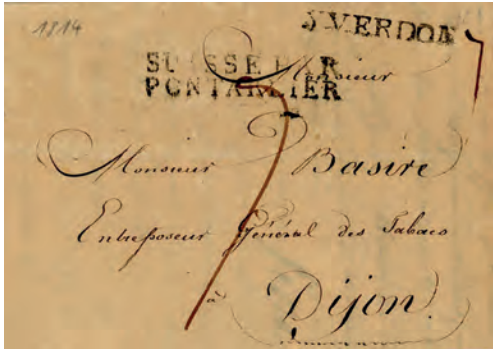 1814
YVERDON
SUISSE PAR
PONTARLIER
Monsieur
7
Monsieur Basire
Entreposeur Général des Tabacs
à
Dijon.